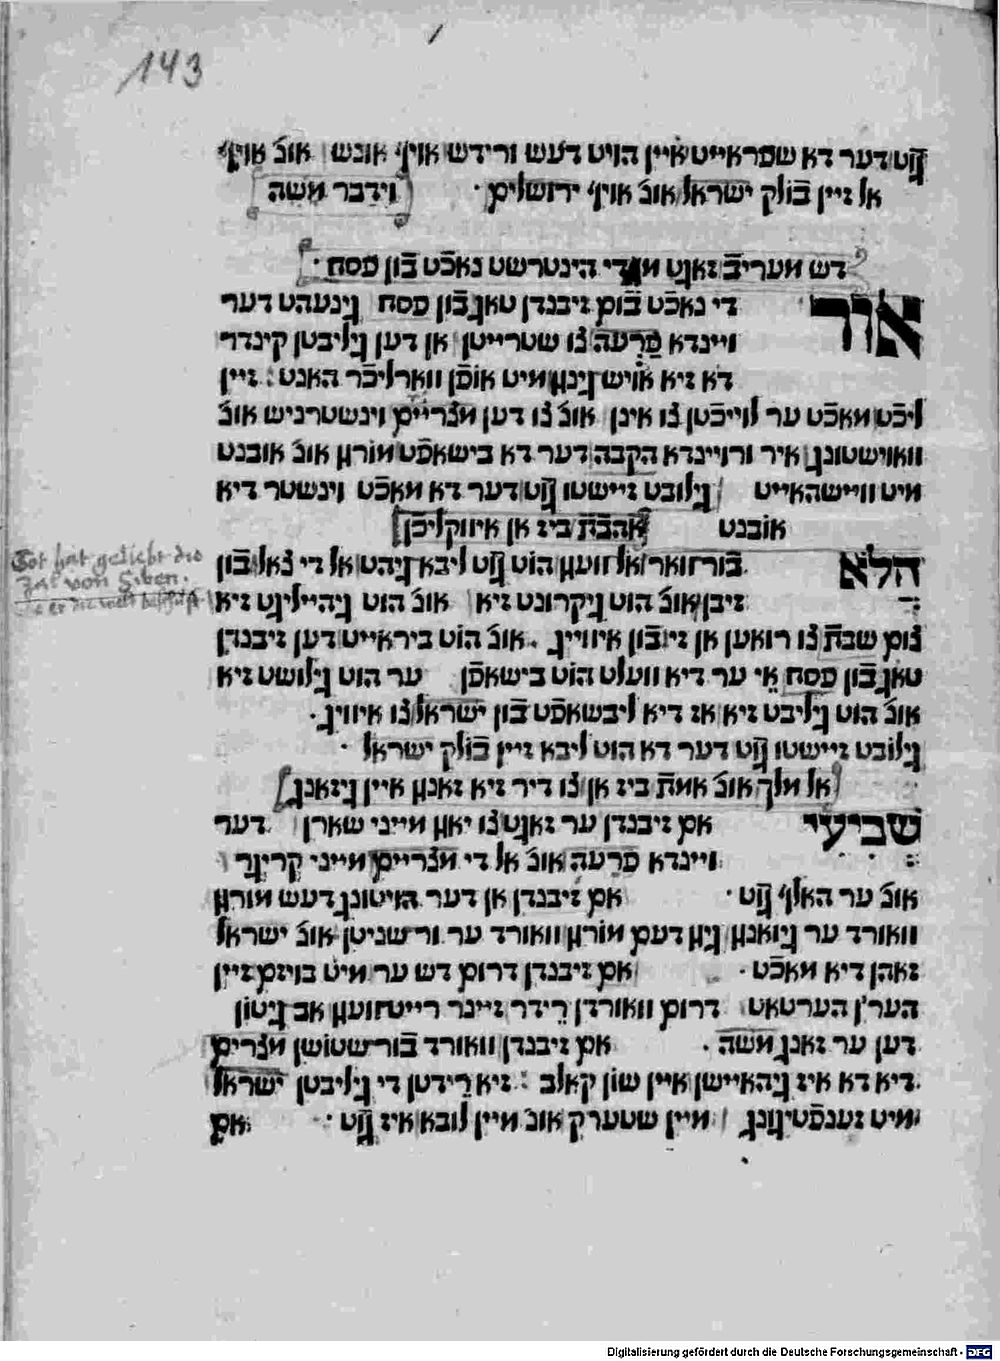 143
גוט דער דא שפראייט איין הויט דעש ורידש אויף אונש אונ אויף
אל זיין בולק ישראל אונ אויף ירושלים וידבר משה
דש מעריב זאגט מן די הינטרשט נאכט בון פסח
אור די נאכט בום זיבנדן טאג בון פסח גינעהט דער
ויינדא פרעה צו שטרייטן אן דען גיליבטן קינדר
דא זיא אויש גינגן מיט אופן ווארליכר האנט זיין
ליכט מאכט ער לוייכטן צו אינן אונ צו דען מצריים וינשטרניש אונ
וואוישטונג איר ורויינדא הקבה דער דא בישאפט מורגן אונ אובנט
מיט וויישהאייט גילובט זיישטו גוט דער דא מאכט וינשטר דיא
אובנט אהבת ביז אן איווקליכן
Got hat geliebt die
Zal von Siben.
הלא בור וואר אל וועגן הוט גוט ליבא גיהט אל די צאל בון
זיבן אונ הוט גיקרונט זיא אונ הוט גיהיילגט זיא
צום שבת צו רואען אן זיא בון איוויג אונ הוט ביראייט דען זיבנדן
טאג בון פסח אי ער דיא וועלט הוט בישאפן ער הוט גילושט זיא
אונ הוט גיליבט זיא אז דיא ליבשאפט בון ישראל צו איוויג
גילובט זיישטו גוט דער דא הוט ליבא זיין בולק ישראל
אל מלך אונ אמת ביז אן צו דיר זיא זאגן איין גיזאנג
שביעי אם זיבנדן ער זאגט צו יאגן מייני שארן דער
ויינדא פרעה אונ אל די מצריים מייני קריגר
אונ ער האלף גוט אם זיבנדן אן דער הויטונג דעש מורגן
ווארד ער גיוואגן גיגן דעם מורגן ווארד ער ור שניטן אונ ישראל
זאהן דיא מאכט אם זיבנדן דרום דש ער מיט בויזם זיין
הערצן הערטאט דרום ווארדן רידר זיינר רייט וועגן אב גיטון
דען ער זאנג משה אם זיבנדן ווארד בור שטושן מצרים
דיא דא איז גיהאיישן איין שון קאלב זיא רידטן די גיליבטן ישראל
מיט זענפטיגונג מיין שטערק אונ מיין לובא איז גוט אם
Digitalisierung gefördert durch die Deutsche Forschungsgemeinschaft - DFG